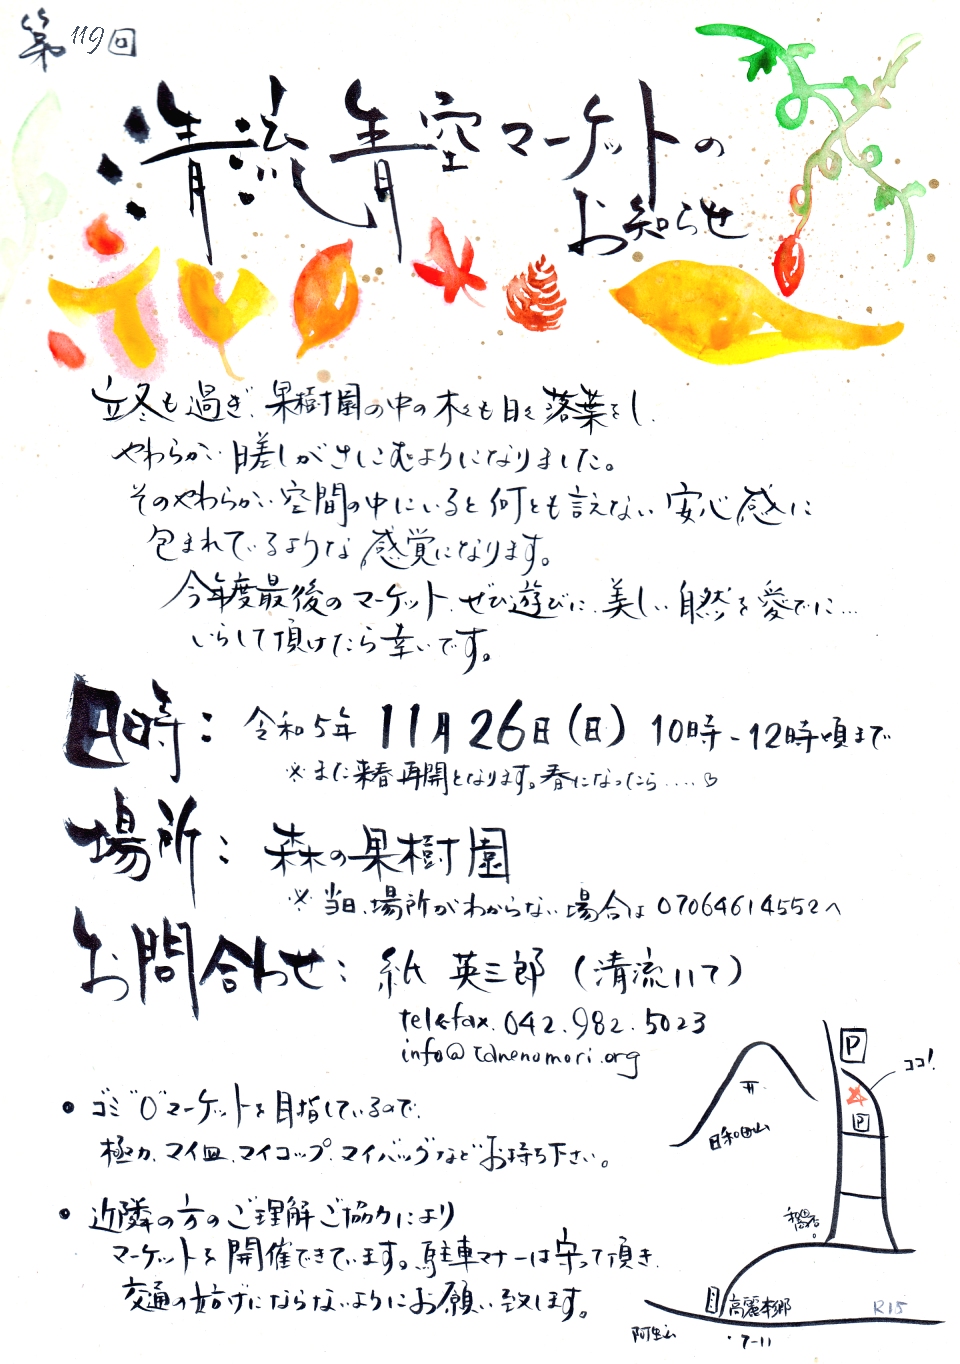 第119回
清流青空マーケットの
お知らせ
立冬も過ぎ、果樹園の中の木々も日々落葉をし、
やわらかい日差しがさしこむようになりました。
そのやわらかい空間の中にいると何とも言えない安心感に
包まれているような感覚になります。
今年度最後のマーケット、ぜひ遊びに、美しい自然を愛でに…
いらして頂けたら幸いです。
日時： 令和5年 11月26日（日） 10時-12時頃まで
※また来春再開となります。春になったら....♡
場所： 森の果樹園
※当日、場所がわからない場合は 07064614552へ
お問合わせ： 紙 英三郎（清流にて）
tel&fax. 042.982.5023
info@tanenomori.org
• ゴミ"0"マーケットを目指しているので、
極力、マイ皿、マイコップ、マイバッグなどお持ち下さい。
• 近隣の方のご理解ご協力により
マーケットを開催できています。駐車マナーは守って頂き、
交通の妨げにならないようにお願い致します。
P
ココ!
P
日和田山
高麗本郷
R15
7-11